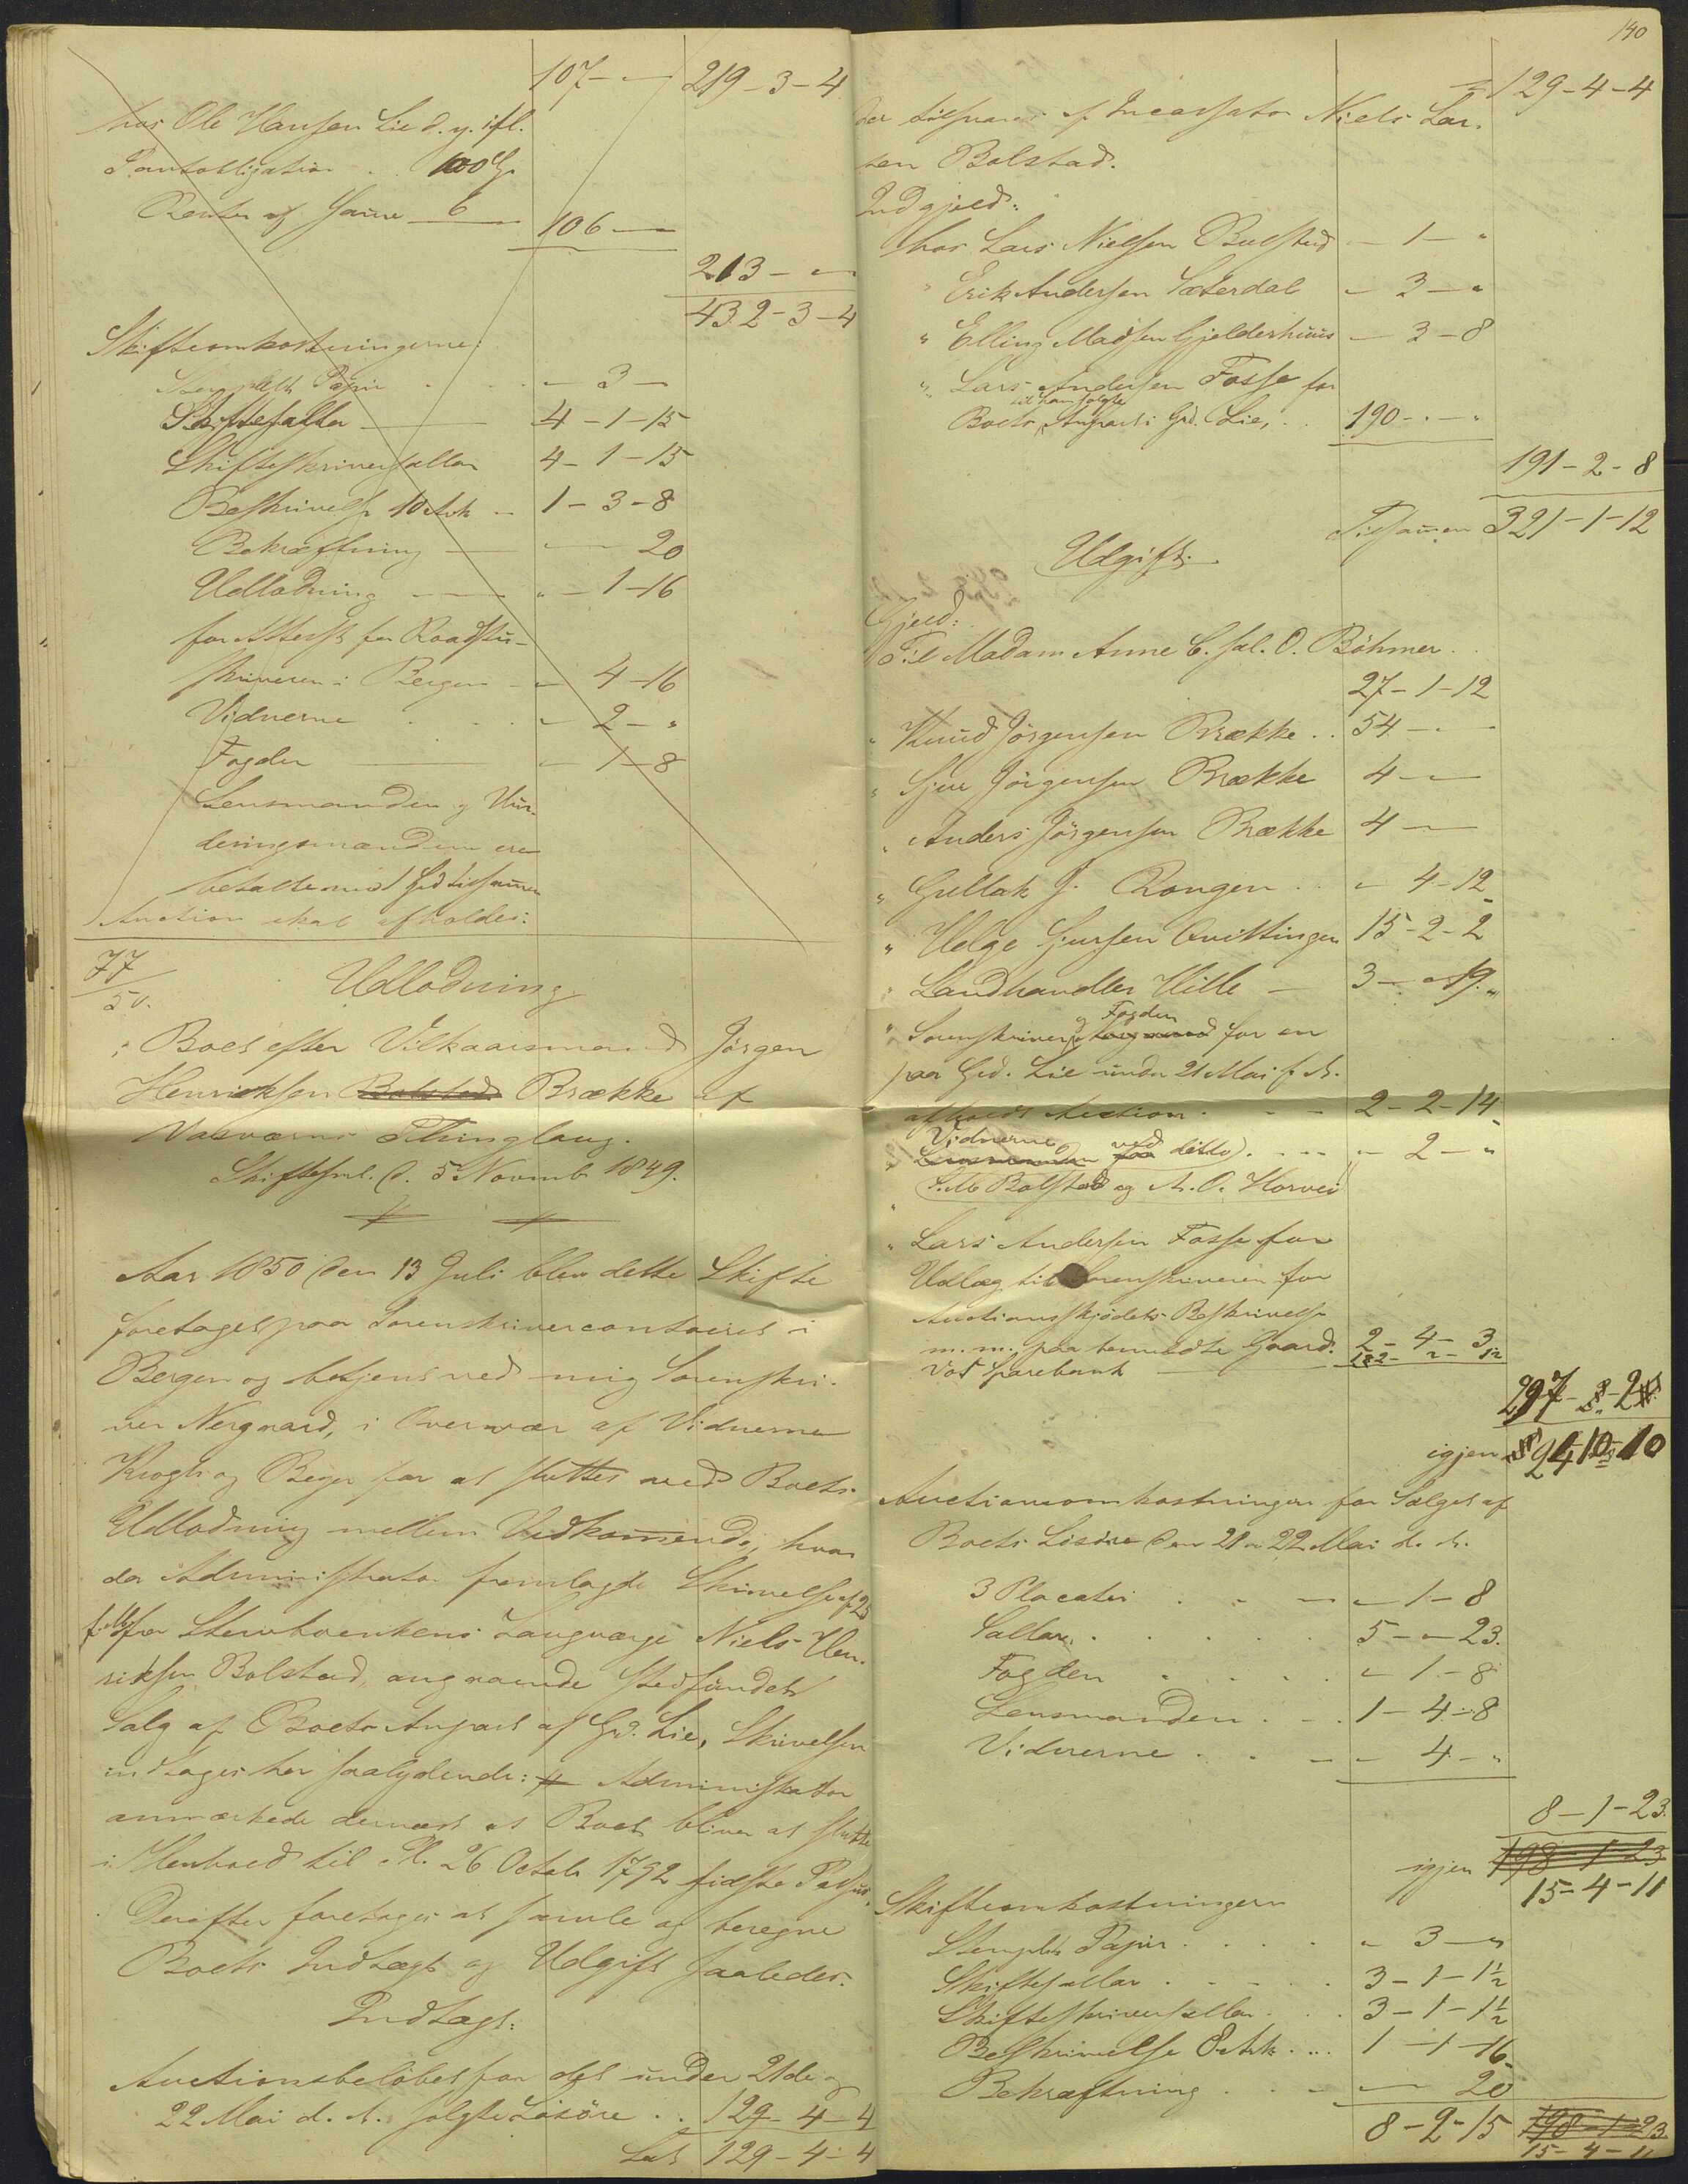 107 - " - 219 - 3 - 4
hos Ole Hansen Lie d. y. ifl.
Pantobligation . 100 Sp
Renter af samme 6
106 -
213 - "
432 - 3 - 4
Skifteomkostningerne:
Stemplet Papir . . . " - 3 -
Skiftesallar 4 - 1 - 15
Skifteskriversallar 4 - 1 - 15
Beskrivelse 10 Ark - 1 - 3 - 8
Bekræftning 20
Udlodning " - 1 - 16
for Attest fra Raadstu-
skriveren i Bergen - " 4 - 16
Vidnerne . . " 2 - "
Fogden " 1 - 8
Lensmanden og Vur-
deringsmændene ere
betalte med
Auction skal afholdes:
77
50.
Udlodning
i Boet efter Vilkaarsmand Jørgen
Henriksen Bolstad Brække af
Vasværns Thinglaug.
Skiftesml. d. 5 Novemb 1849.
Aar 1850 den 13 Juli blev dette Skifte
foretaget paa Sorenskrivercontoiret i
Bergen og betjent ved mig Sorenskri-
ver Nergaard, i Overvær af Vidnerne
Krogh og Beyer for at sluttes med Boets
Udlodning mellem Vedkommende, hvor
da Administrator fremlagde Skrivelse af 25
f. M. fra Stervboenkens Laugværge Niels Hen-
riksen Bolstad, angaaende stedfundet
Salg af Boets Anpart af Grd. Lie, Skrivelsen
indtages her saalydende: # Administrator
anmærkede dernæst at Boet bliver at slutte
i Henhold til Pl. 26 Octob 1792 sidste Passus.
Derefter foretoges at samle og beregne
Boets Indtægt og Udgift saaledes:
Indtægt:
Auctionsbeløbet for det under 21de og
22 Mai d. A. solgte Løsøre . . 129 - 4 - 4
Lat 129 - 4 - 4
140
129 - 4 - 4
der tilsvares af Incassator Niels Lar-
sen Bolstad.
Indgjeld:
hos Lars Nielsen Bolstad - 1 - "
" Erik Andersen Sæterdal - 3 - "
" Elling Madsen Gjelderhuus - 3 - 8
" Lars Andersen Fosse for
til ham solgte
Boets Anpart i Grd. Lie, . . 190 - " - "
191 - 2 - 8
Tilsammen 321 - 1 - 12
Udgift:
Gjeld:
Til Madam Anne C. sal. O. Böhmer . .
27 - 1 - 12
" Knud Jørgensen Brække . . 54 - " -
" Sjur Jørgensen Brække 4 - " -
" Anders Jørgensen Brække 4 - " -
" Gullak J. Rongen . . " 4 - 12
" Helge Sjursen Qvittingen 15 - 2 - 2
" Landhandler Hille - 3 - " 19 "
og Fogden
" Sorenskriver for en
paa Grd. Lie under 21 Mai f. A.
afholdt Auction . - - 2 - 2 - 14
Vidnerne ved
" Lensmanden paa ditto . - - - " - 2 - "
Bolstad og A. O. Horvei
" Lars Andersen Fosse for
Udlæg til Sorenskriveren for
Auctionsskjødets Beskrivelse
m. m., paa bemeldte Gaard. 2 - 4 - 3
Vos Sparebank
297
igjen
Auctionsomkostningerne for Salget af
Boets Løsøre den 21 og 22 Mai d. A.
3 Placater . . - - " - 1 - 8
Sallar . . . . . 5 - " - 23.
Fogden . . . . " - 1 - 8
Lensmanden . - . 1 - 4 - 8
Vidnerne . . - - " - 4 - "
8 - 1 - 23.
igjen 198 - 1 - 23
15 - 4 - 11
Skifteomkostningerne
Stemplet Papir . . . . " 3 - "
Skiftesallar . . - . . 3 - 1 - 1½
Skifteskriversallar . . 3 - 1 - 1½
Beskrivelse 8 Ark . . . 1 - 1 - 16
Bekræftning . - - 20
8 - 2 - 15 198 - 1 - 23
15 - 4 - 11